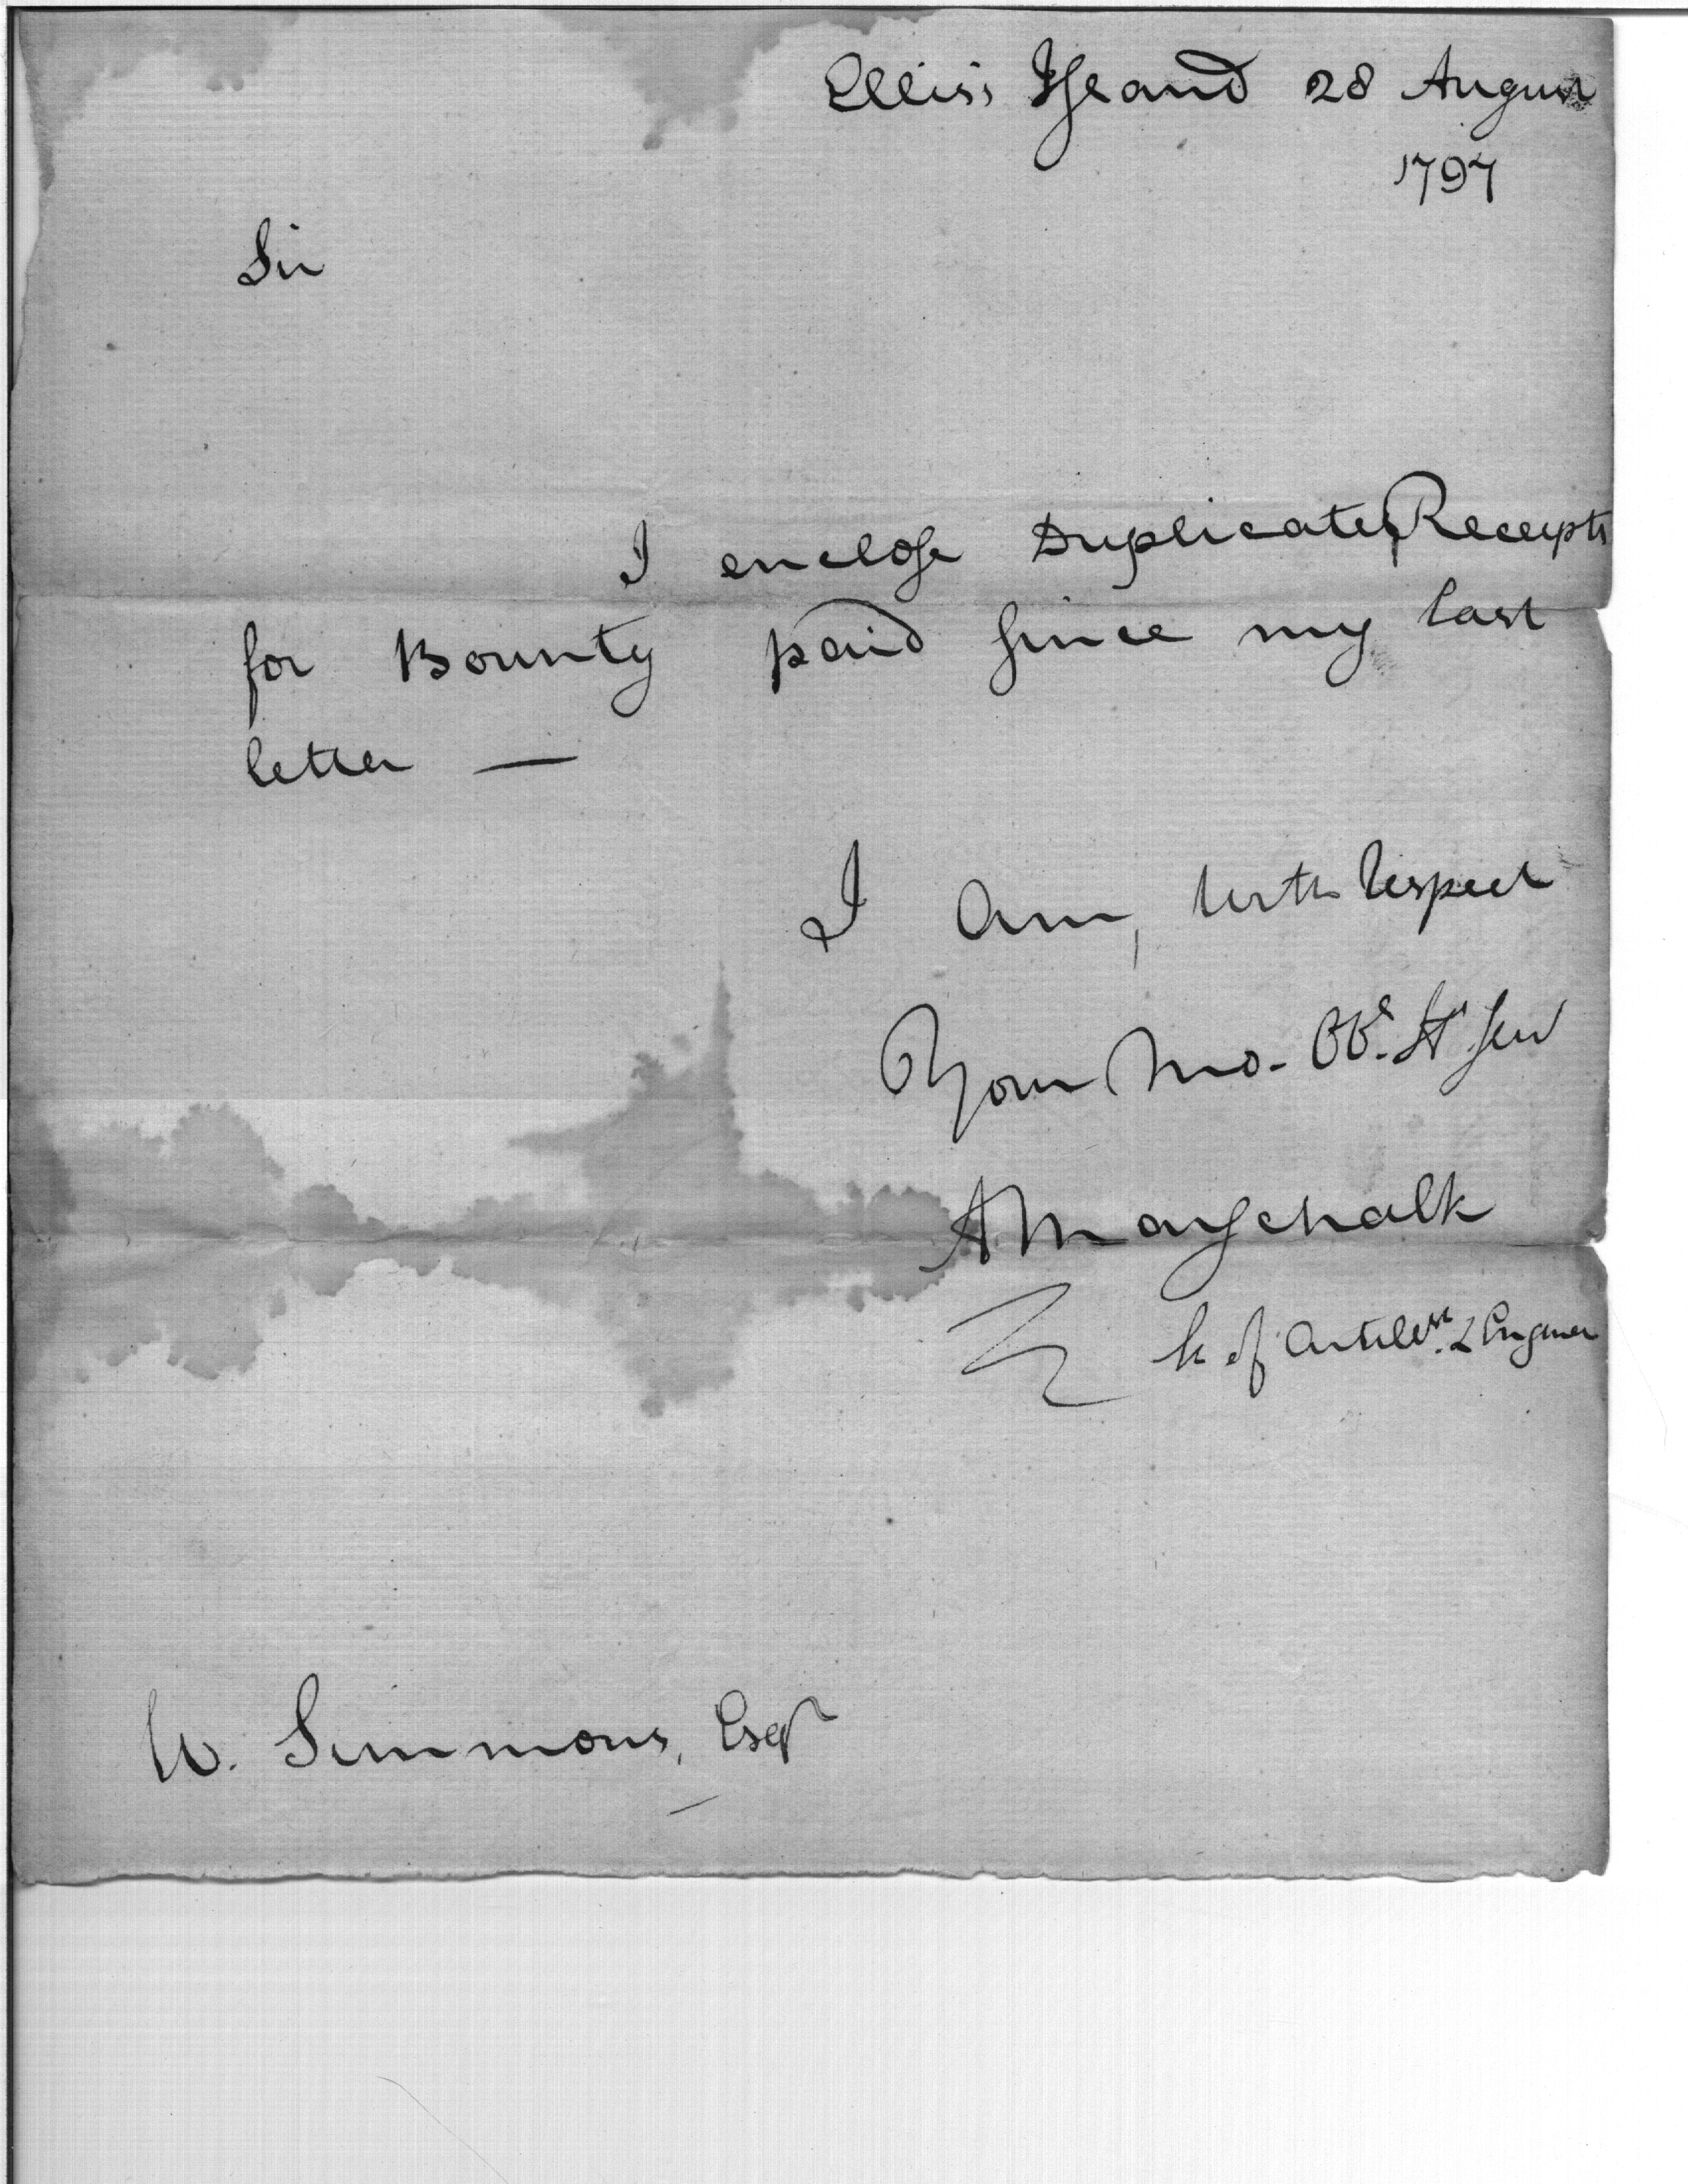 Ellis's Island 28 August
1797
Sir
I enclose Duplicate Receipts
for Bounty paid since my last
letter —
I am, with respect
Your Mo. Ob. St Serv
A Marschalk
of Artill.ry & Engineer
W. Simmons, Esqr